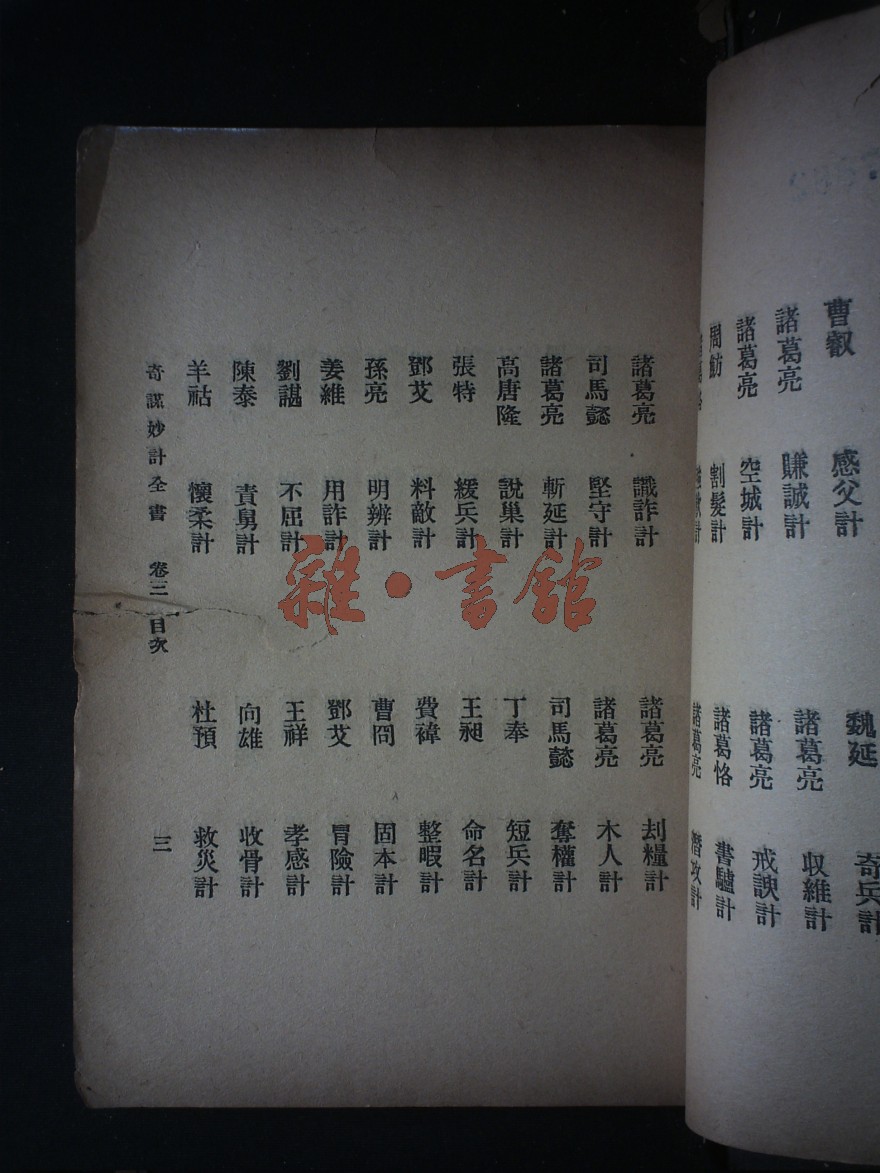 曹叡 感父計
魏延 奇兵計
諸葛亮 賺誠計
諸葛亮 収維計
諸葛亮 空城計
諸葛亮 戒諛計
周魴 割髮計
諸葛恪 書驢計
諸葛亮
諸葛亮 識詐計
諸葛亮 刦糧計
司馬懿 堅守計
諸葛亮 木人計
諸葛亮 斬延計
司馬懿 奪權計
高唐隆 說巢計
丁奉 短兵計
張特 緩兵計
王昶 命名計
鄧艾 料敵計
費禕 整暇計
孫亮 明辨計
曹冏 固本計
姜維 用詐計
鄧艾 冒險計
劉諶 不屈計
王祥 孝感計
陳泰 責舅計
向雄 收骨計
羊祜 懷柔計
杜預 救災計
奇謀妙計全書 卷三 目次
三
雜·書館